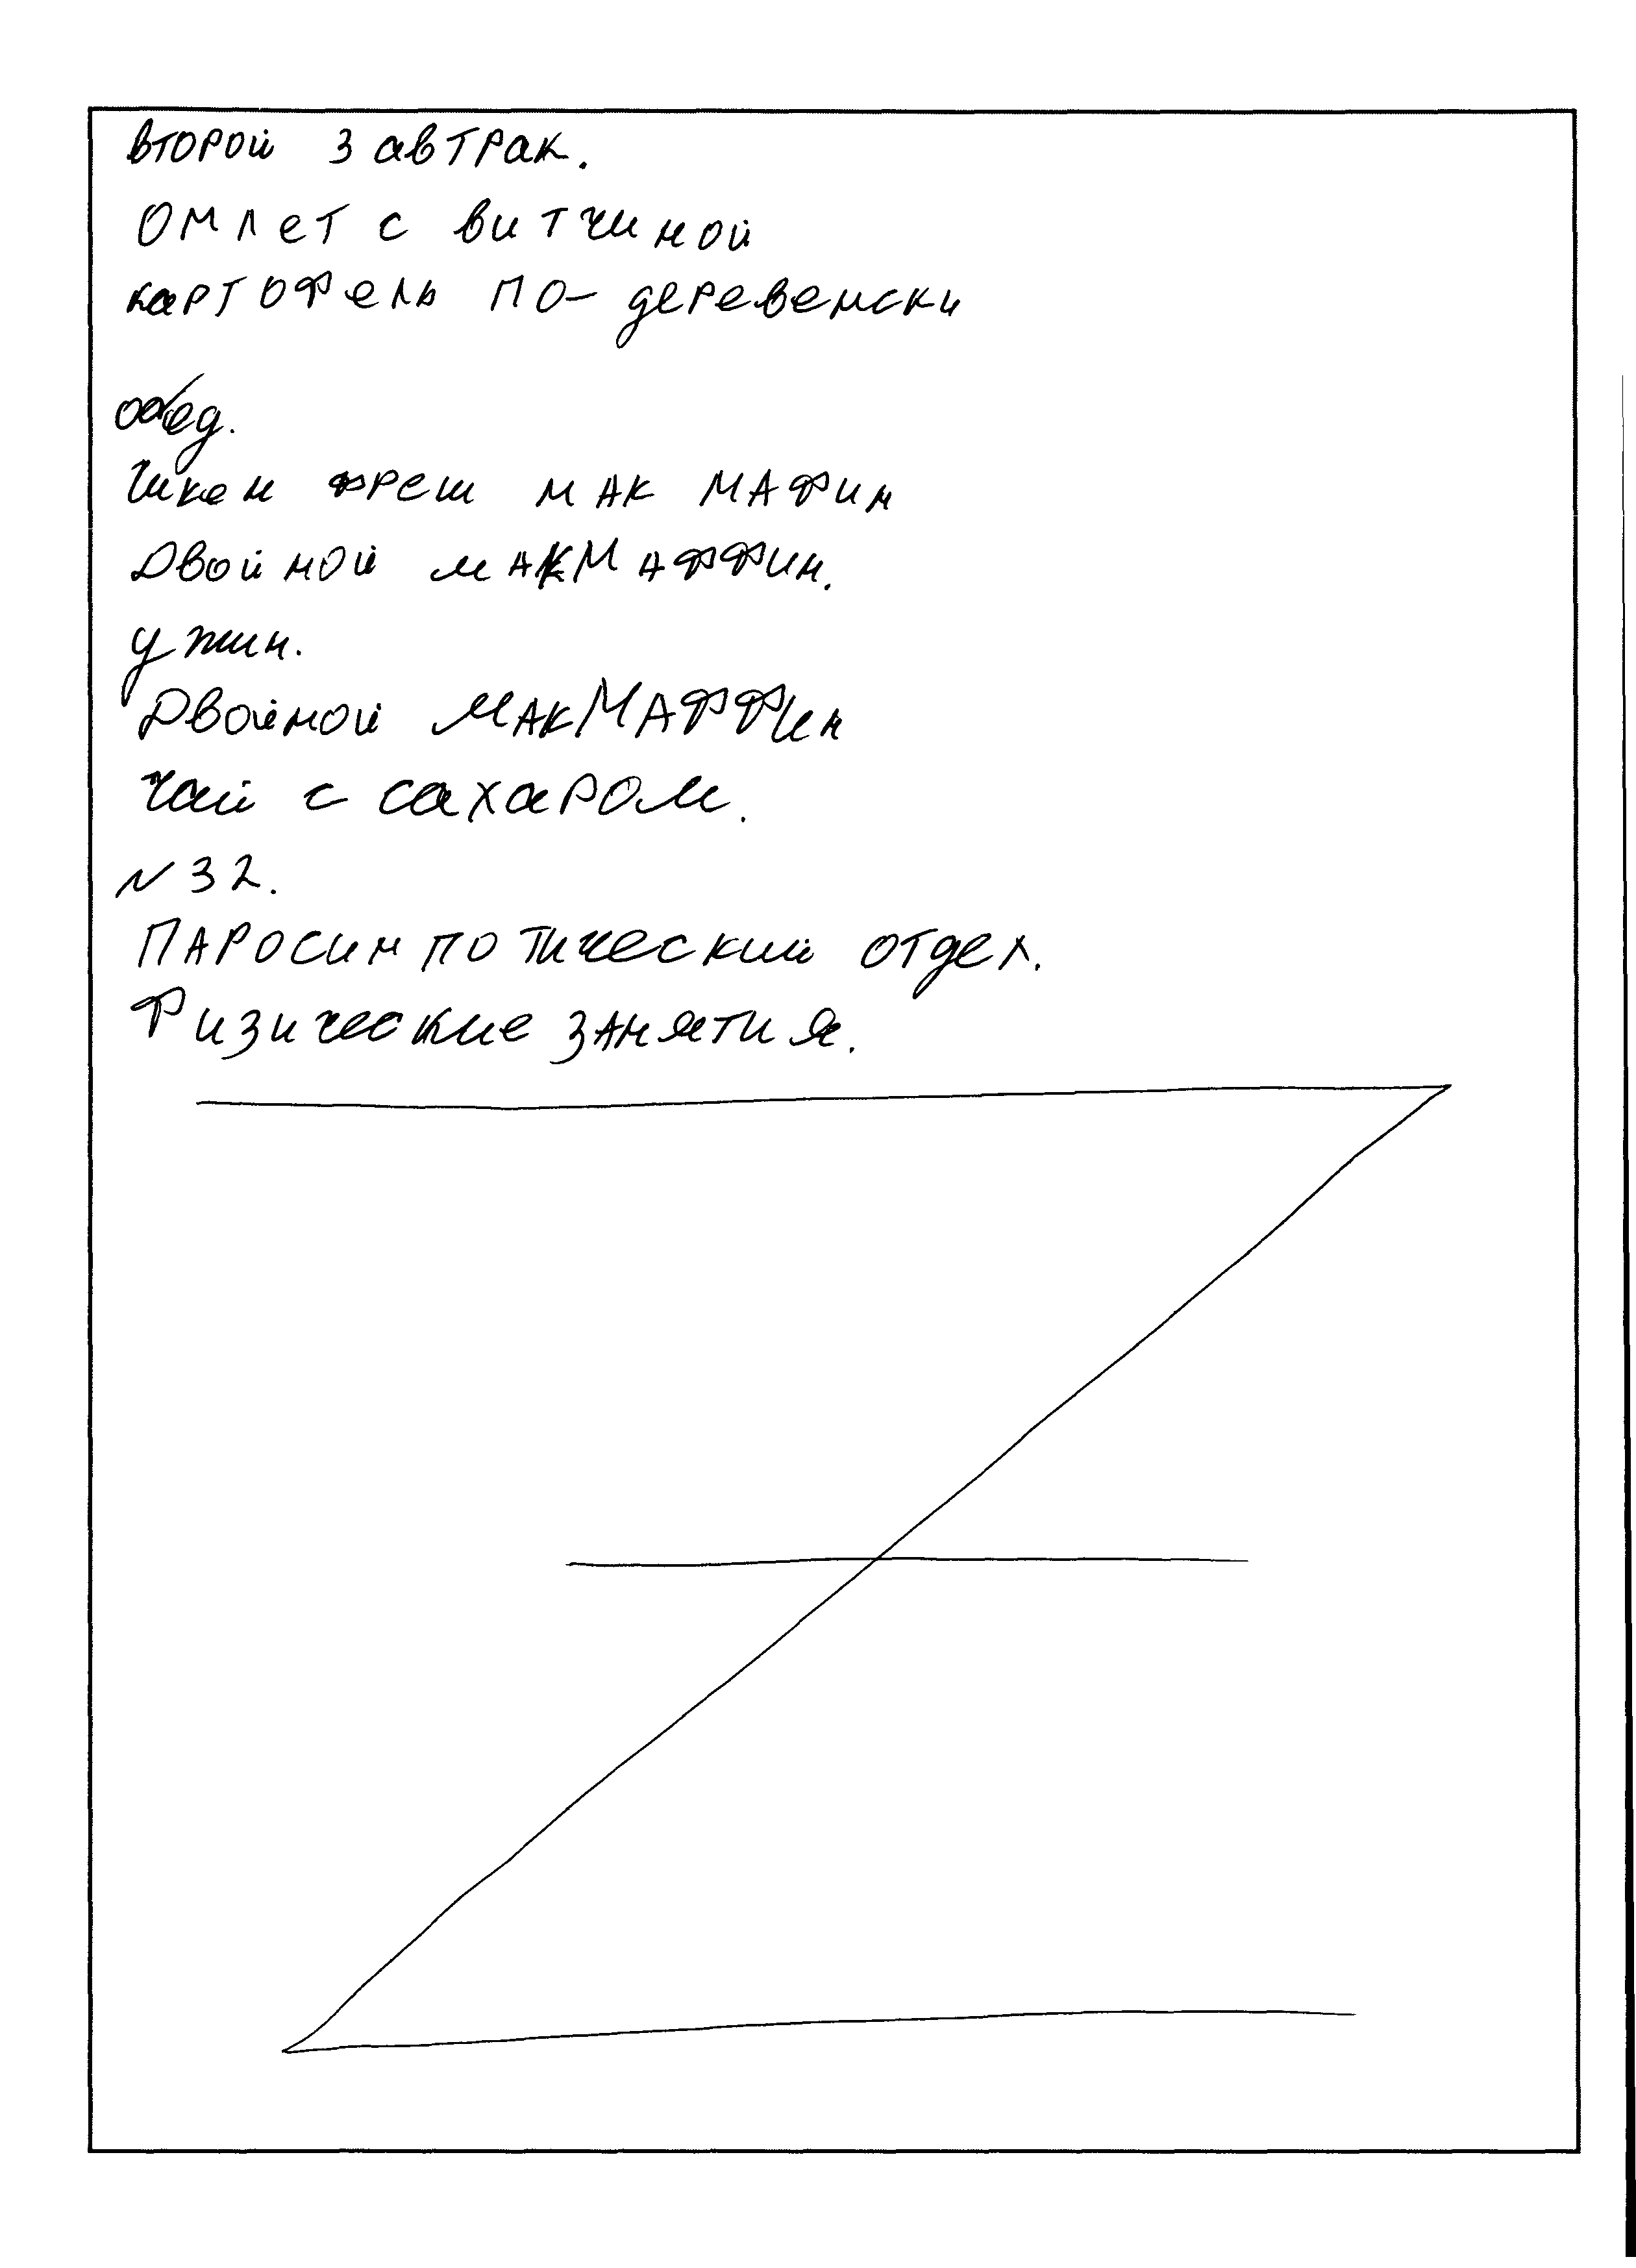 второй завтрак.
Омлет с витчиной
картофель по-деревенски
обед.
Чикен фреш мак мафин
Двойной макмаффин.
ужин.
Двойной МакМаффин
чай с сахаром.
№32.
Паросимпотический отдел.
Физические занятия.